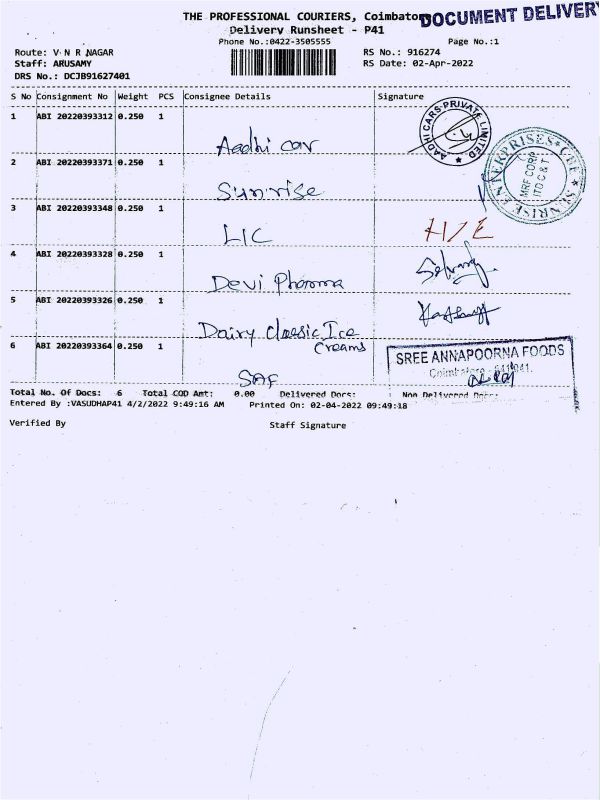 THE PROFESSIONAL COURIERS, Coimbator
DOCUMENT DELIVERY
Delivery Runsheet - P41
Phone No.:0422-3505555
Page No.:1
Route: V N R NAGAR
RS No.: 916274
Staff: ARUSAMY
RS Date: 02-Apr-2022
DRS No.: DCJB91627401
S No Consignment No Weight PCS Consignee Details Signature
1 ABI 20220393312 0.250 1
Aadhi car
AADHI CARS PRIVATE LIMITED
2 ABI 20220393371 0.250 1
Sunrise
SUNRISE ENTERPRISES CBE
MRF CORP
ITD C & T
3 ABI 20220393348 0.250 1
LIC
H/E
4 ABI 20220393328 0.250 1
Devi Pharma
5 ABI 20220393326 0.250 1
Dairy classic Ice
creams
6 ABI 20220393364 0.250 1
SAF
SREE ANNAPOORNA FOODS
Coimbatore - 641041.
Total No. Of Docs: 6 Total COD Amt: 0.00 Delivered Docs: Non Delivered Docs:
Entered By :VASUDHAP41 4/2/2022 9:49:16 AM Printed On: 02-04-2022 09:49:18
Verified By Staff Signature